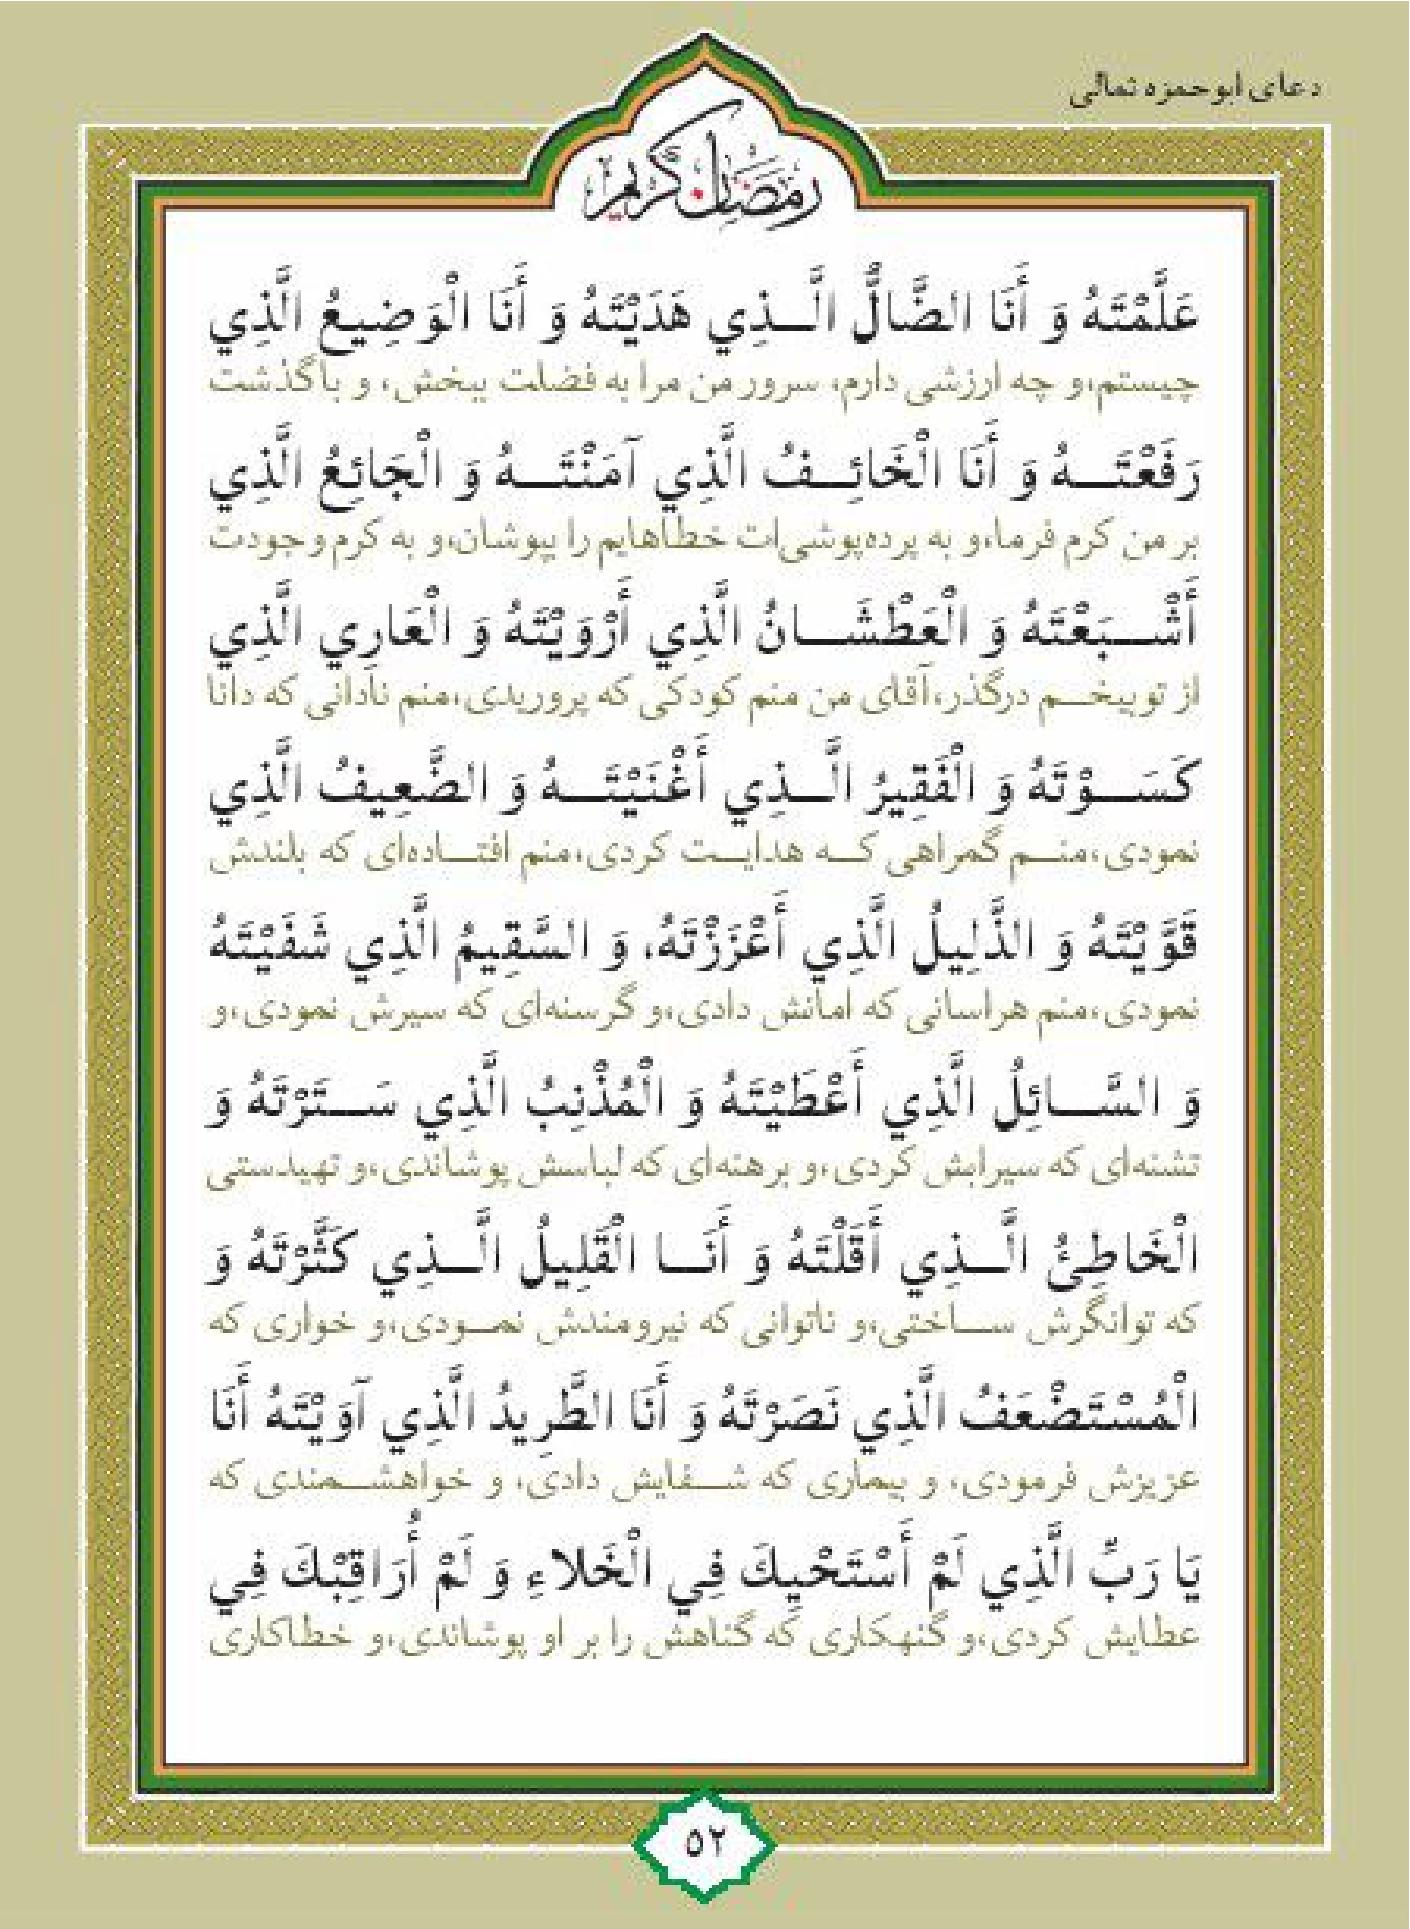 دعای ابوحمزه ثمالی
رمضان کریم
عَلَّمْتَهُ وَ أَنَا الضَّالُّ الَّذِي هَدَيْتَهُ وَ أَنَا الْوَضِيعُ الَّذِي
چیستم،و چه ارزشی دارم، سرور من مرا به فضلت ببخش، و باگذشت
رَفَعْتَهُ وَ أَنَا الْخَائِفُ الَّذِي آمَنْتَهُ وَ الْجَائِعُ الَّذِي
بر من کرم فرما،و به پرده‌پوشی‌ات خطاهایم را بپوشان،و به کرم وجودت
أَشْبَعْتَهُ وَ الْعَطْشَانُ الَّذِي أَرْوَيْتَهُ وَ الْعَارِي الَّذِي
از توبیخم درگذر،آقای من منم کودکی که پروریدی،منم نادانی که دانا
كَسَوْتَهُ وَ الْفَقِيرُ الَّذِي أَغْنَيْتَهُ وَ الضَّعِيفُ الَّذِي
نمودی،منم گمراهی که هدایت کردی،منم افتاده‌ای که بلندش
قَوَّيْتَهُ وَ الذَّلِيلُ الَّذِي أَعْزَزْتَهُ، وَ السَّقِيمُ الَّذِي شَفَيْتَهُ
نمودی،منم هراسانی که امانش دادی،و گرسنه‌ای که سیرش نمودی،و
وَ السَّائِلُ الَّذِي أَعْطَيْتَهُ وَ الْمُذْنِبُ الَّذِي سَتَرْتَهُ وَ
تشنه‌ای که سیرابش کردی،و برهنه‌ای که لباسش پوشاندی،و تهیدستی
الْخَاطِئُ الَّذِي أَقَلْتَهُ وَ أَنَا الْقَلِيلُ الَّذِي كَثَّرْتَهُ وَ
که توانگرش ساختی،و ناتوانی که نیرومندش نمودی،و خواری که
الْمُسْتَضْعَفُ الَّذِي نَصَرْتَهُ وَ أَنَا الطَّرِيدُ الَّذِي آوَيْتَهُ أَنَا
عزیزش فرمودی، و بیماری که شفایش دادی، و خواهشمندی که
يَا رَبِّ الَّذِي لَمْ أَسْتَحْيِكَ فِي الْخَلاءِ وَ لَمْ أُرَاقِبْكَ فِي
عطایش کردی،و گنهکاری که گناهش را بر او پوشاندی،و خطاکاری
۵۲